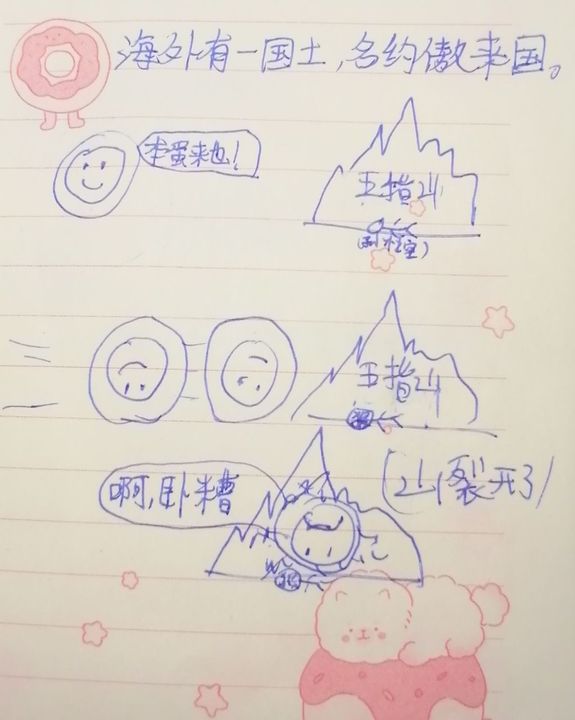 海外有一国土,名约傲来国。
本蛋来也!
五指山
五指山
啊,卧糟
(山裂开了)